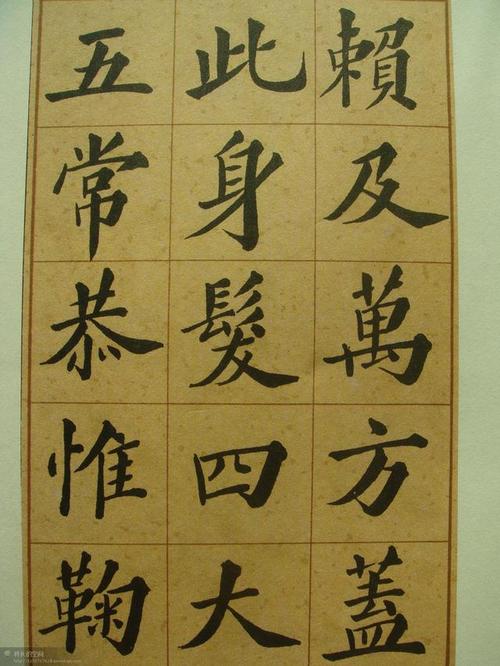 賴及萬方蓋
此身髮四大
五常恭惟鞠